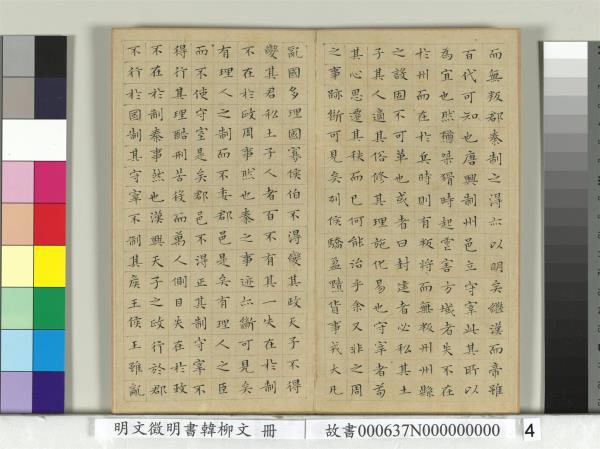 而無叛郡秦制之得亦以明矣繼漢而帝雖
百代可知也唐興制州邑立守宰此其所以
為宜也然猶桀猾時起虐害方域者失不在
於州而在於兵時則有叛將而無叛州州縣
之設固不可革也或者曰封建者必私其土
子其人適其俗修其理施化易也守宰者苟
其心思遷其秩而已何能治乎余又非之周
之事跡斷可見矣列侯驕盈黷貨事戎大凡
亂國多理國寡侯伯不得變其政天子不得
變其君私土子人者百不有其一失在於制
不在於政周事然也秦之事迹亦斷可見矣
有理人之制而不委郡邑是矣有理人之臣
而不使守宰是矣郡邑不得正其制守宰不
得行其理酷刑苦役而萬人側目失在於政
不在於制秦事然也漢興天子之政行於郡
不行於國制其守宰不制其侯王侯王雖亂
明文徵明書韓柳文 冊
故書000637N000000000
4